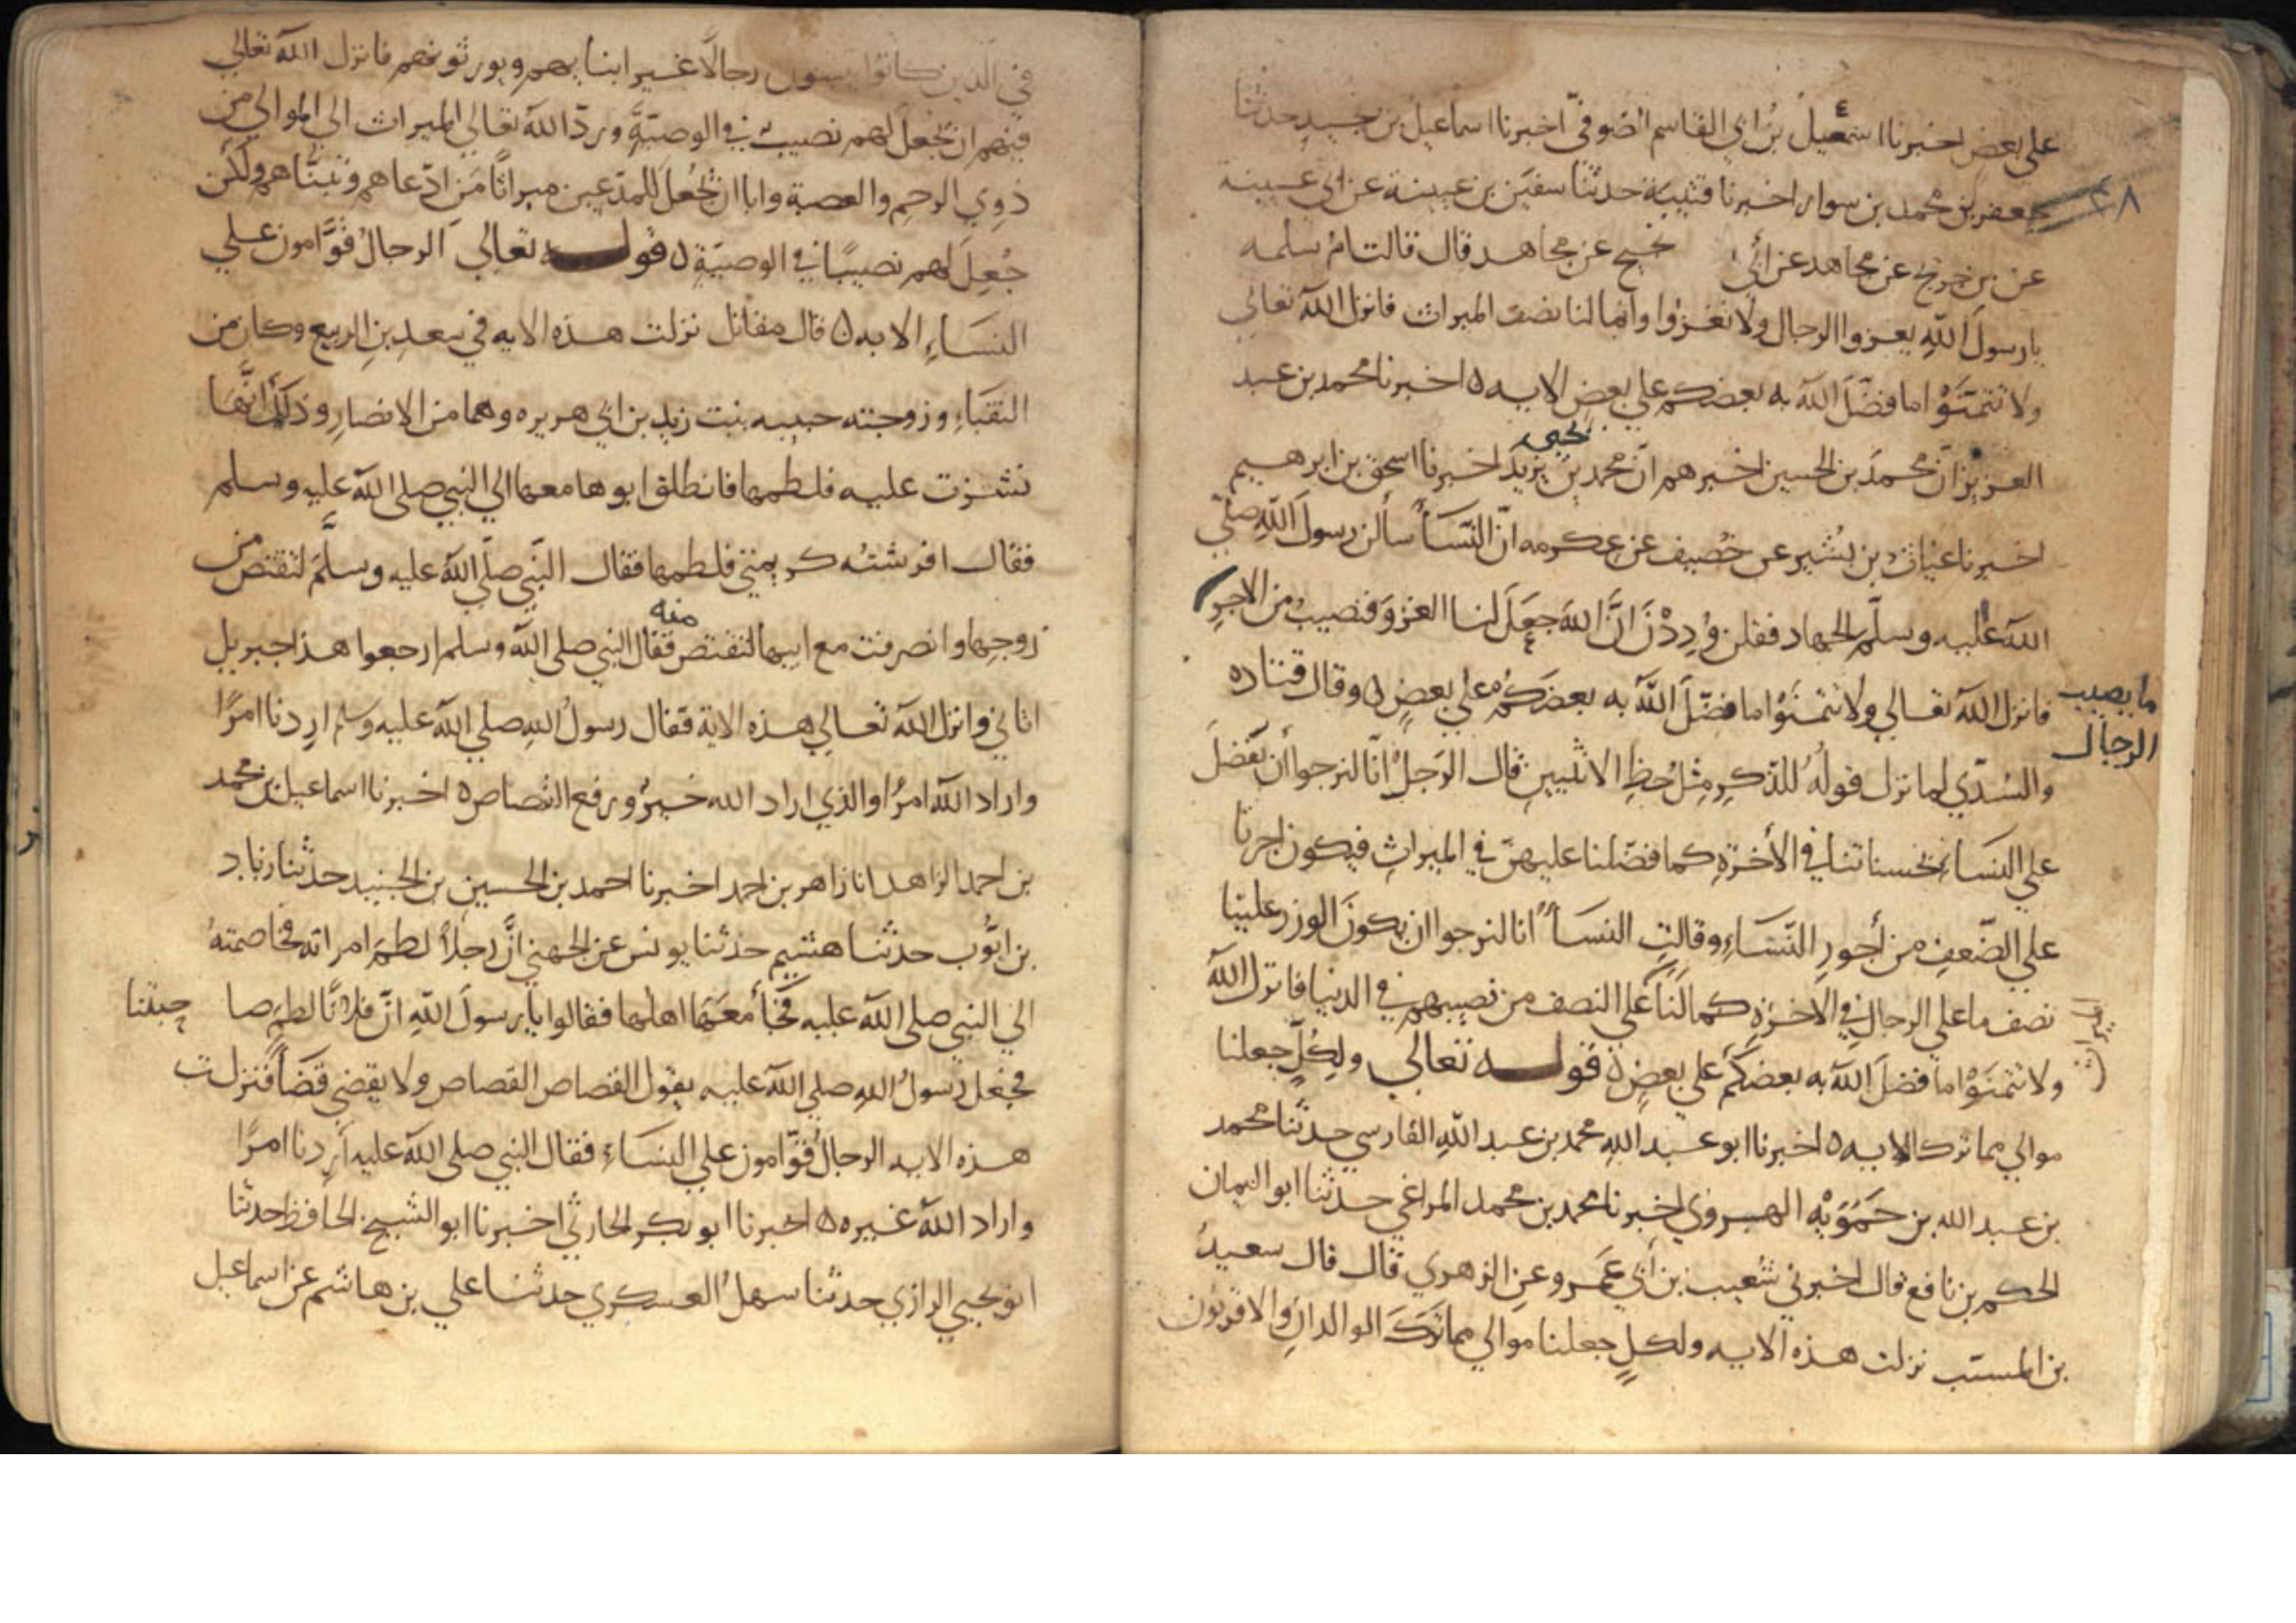 على بعض اخبرنا اسمعيل بن ابي القاسم الصوفي اخبرنا اسماعيل بن نجيد حدثنا
جعفر بن محمد بن سوار اخبرنا قتيبة حدثنا سفين بن عيينة عن ابي
عن مجاهد عن نجيح عن مجاهد قال قالت ام سلمه
يارسول الله يغزوا الرجال ولا نغزوا وانما لنا نصف الميراث فانزل الله تعالي
ولا تتمنوا ما فضل الله به بعضكم علي بعض الايه ه اخبرنا محمد بن عبد
يحيى
العزيز ان محمد بن الحسين اخبرهم ان محمد بن يزيد اخبرنا اسحق بن ابرهيم
اخبرنا عتاب بن بشير عن خصيف عن عكرمه ان النسا سألن رسول الله صلي
الله عليه وسلم الجهاد فقلن وددن ان الله جعل لنا الغزو فنصيب من الاجر
ما يصيب
الرجال
فانزل الله تعالي ولا تتمنوا ما فضل الله به بعضكم علي بعض ه وقال قتاده
والسدي لما نزل قوله للذكر مثل حظ الانثيين قال الرجل انا لنرجوا أن نفضل
علي النساء بحسناتنا في الأخرة كما فضلنا عليهن في الميراث فيكون اجرنا
علي الضعف من أجور النساء وقالت النسأ انا لنرجوا ان يكون الوزر علينا
نصف ما علي الرجال في الاخرة كما لنا علي النصف من نصيبهم في الدنيا فانزل الله
ولا تتمنوا ما فضل الله به بعضكم علي بعض ه قوله تعالي ولكل جعلنا
موالي مما ترك الايه ه اخبرنا ابو عبد الله محمد بن عبد الله الفارسي حدثنا محمد
بن عبد الله بن حمويه الهروي اخبرنا محمد بن محمد المراغي حدثنا ابو اليمان
الحكم بن نافع قال اخبرني شعيب بن أبي عمرو عن الزهري قال قال سعيد
بن المسيب نزلت هذه الايه ولكل جعلنا موالي مما ترك الوالدان والاقربون
في الذين كانوا رجالا غير ابنايهم ويورثونهم فانزل الله تعالي
فيهم ان يجعل لهم نصيب في الوصية ورد الله تعالي الميراث الي الموالي من
ذوي الرحم والعصبة وابا ان يجعل للمدعين ميراثا من ادعاهم وتبناهم ولكن
جعل لهم نصيبا في الوصية ه قوله تعالي الرجال قوامون علي
النساء الايه ه قال مقاتل نزلت هذه الايه في سعد بن الربيع وكان من
النقباء وزوجته حبيبه بنت زيد بن ابي هريره وهما من الانصار وذلك انها
نشزت عليه فلطمها فانطلق ابوها معها الي النبي صلي الله عليه وسلم
فقال افرشته كريمتي فلطمها فقال النبي صلي الله عليه وسلم لتقتص من
منه
زوجها وانصرفت مع ابيها لتقتص فقال النبي صلي الله وسلم ارجعوا هذا جبريل
اتاني وانزل الله تعالي هذه الاية فقال رسول الله صلي الله عليه وسلم اردنا امرا
واراد الله امرا والذي اراد الله خير ورفع القصاص ه اخبرنا اسماعيل بن محمد
بن احمد الزاهد انا زاهر بن احمد اخبرنا احمد بن الحسين بن الجنيد حدثنا زياد
بن ايوب حدثنا هشيم حدثنا يونس عن الجهني ان رجلا لطم امراته فخاصمته
الي النبي صلي الله عليه فجأ معها اهلها فقالوا يا رسول الله ان فلانا لطم صا حبتنا
فجعل رسول الله صلي الله عليه يقول القصاص القصاص ولا يقضي قضا فنزلت
هذه الايه الرجال قوامون علي النساء فقال النبي صلي الله عليه أردنا امرا
واراد الله غيره ه اخبرنا ابو بكر الحارثي اخبرنا ابو الشيخ الحافظ حدثنا
ابو يحيي الرازي حدثنا سهل العسكري حدثنا علي بن هاشم عن اسماعيل